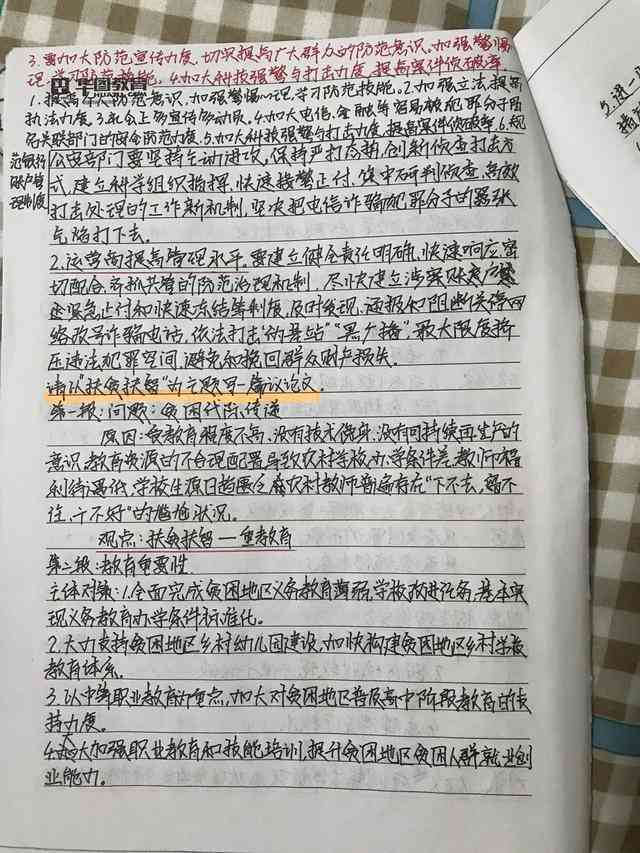 3.要加大防范宣传力度,切实提高广大群众的防范意识,加强警惕
理,学习防范技能。4.加大科技强警与打击力度,提高案件侦破率
华图教育
1.提高个人防范意识,加强警惕心理,学习防范技能。2.加强立法,提高
执法力度。3.社会上多宣传多动员。4.加大电信、金融等容易被犯罪分子防
名关联部门的安全防范力度。5.加大科技强警与打击力度,提高案件侦破率。6.规
范银行
账户管
理制度
公安部门要坚持主动进攻,保持严打态势,创新侦查打击方
式,建立科学组织指挥、快速接警止付、集中研判侦查、高效
打击处理的工作新机制,坚决把电信诈骗犯罪分子的嚣张
气焰打下去。
2.运营商提高管理水平,要建立健全责任明确、快速响应、密
切配合、齐抓共管的防范治理机制,尽快建立涉案账户
紧急止付和快速冻结等制度,及时发现、通报和阻断关停网
络改号诈骗电话,依法打击“伪基站”“黑广播”,最大限度挤
压违法犯罪空间,避免和挽回群众财产损失。
请以“扶贫扶智”为主题写一篇议论文。
第一段:问题:贫困代际传递
原因:受教育程度不高,没有技术傍身,没有可持续再生产的
意识,教育资源的不合理配置,导致农村学校办学条件差,教师福
利待遇低,学校生源日趋匮乏,农村教师普遍存在“下不去,留不
住,干不好”的尴尬状况。
观点:扶贫扶智——重教育
第二段:教育重要性
主体对策:1.全面完成贫困地区义务教育薄弱学校改进任务,基本实
现义务教育办学条件标准化。
2.大力支持贫困地区乡村幼儿园建设,加快构建贫困地区乡村学校
教育体系。
3.以中等职业教育为重点,加大对贫困地区普及高中阶段教育的支
持力度。
4.加大加强职业教育和技能培训,提升贫困地区贫困人群就业创
业能力。
2.进一
措